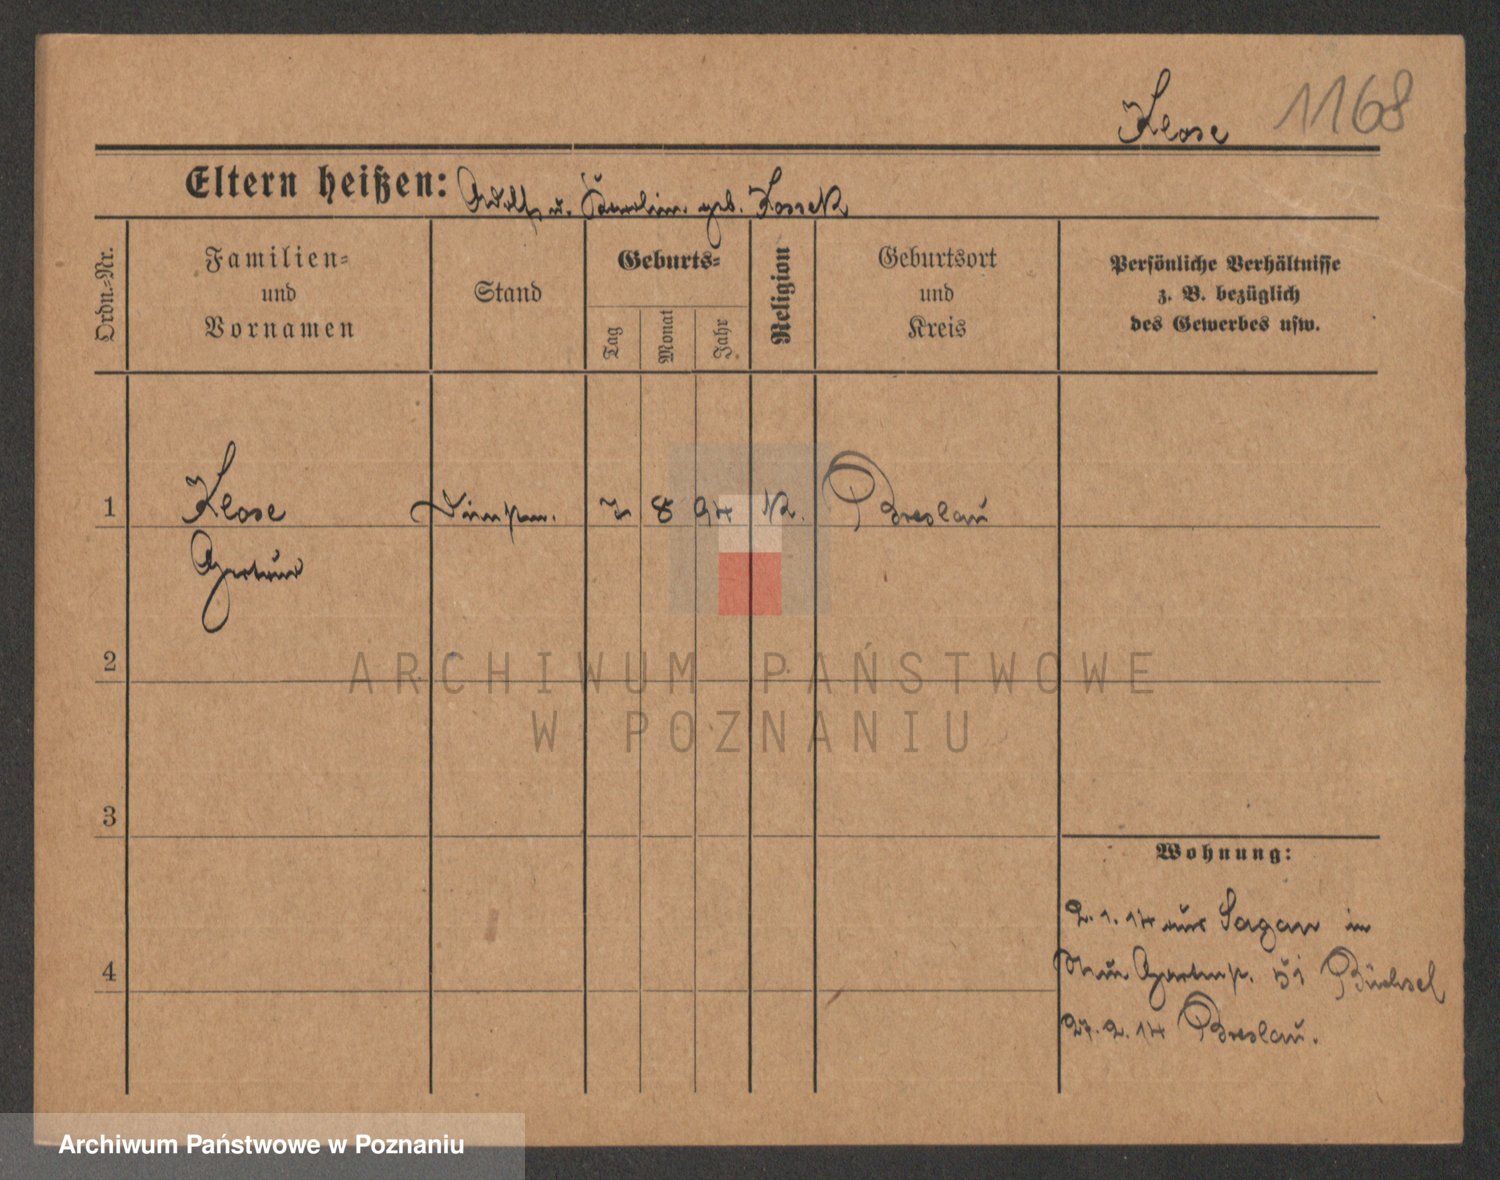 Klose 1168
Eltern heißen: Adolf u. Karolin. geb. Kossek
Ordn.-Nr.
Familien-
und
Vornamen
Stand
Geburts-
Tag
Monat
Jahr
Religion
Geburtsort
und
Kreis
Persönliche Verhältnisse
z. B. bezüglich
des Gewerbes usw.
1 Klose 8 94 K. Breslau
Gertrud
2
3
4
Wohnung:
2. 1. 14 aus Sagan in
Gartenstr. 51 Büchsel
27. 2. 14 Breslau.
ARCHIWUM PAŃSTWOWE
W POZNANIU
Archiwum Państwowe w Poznaniu